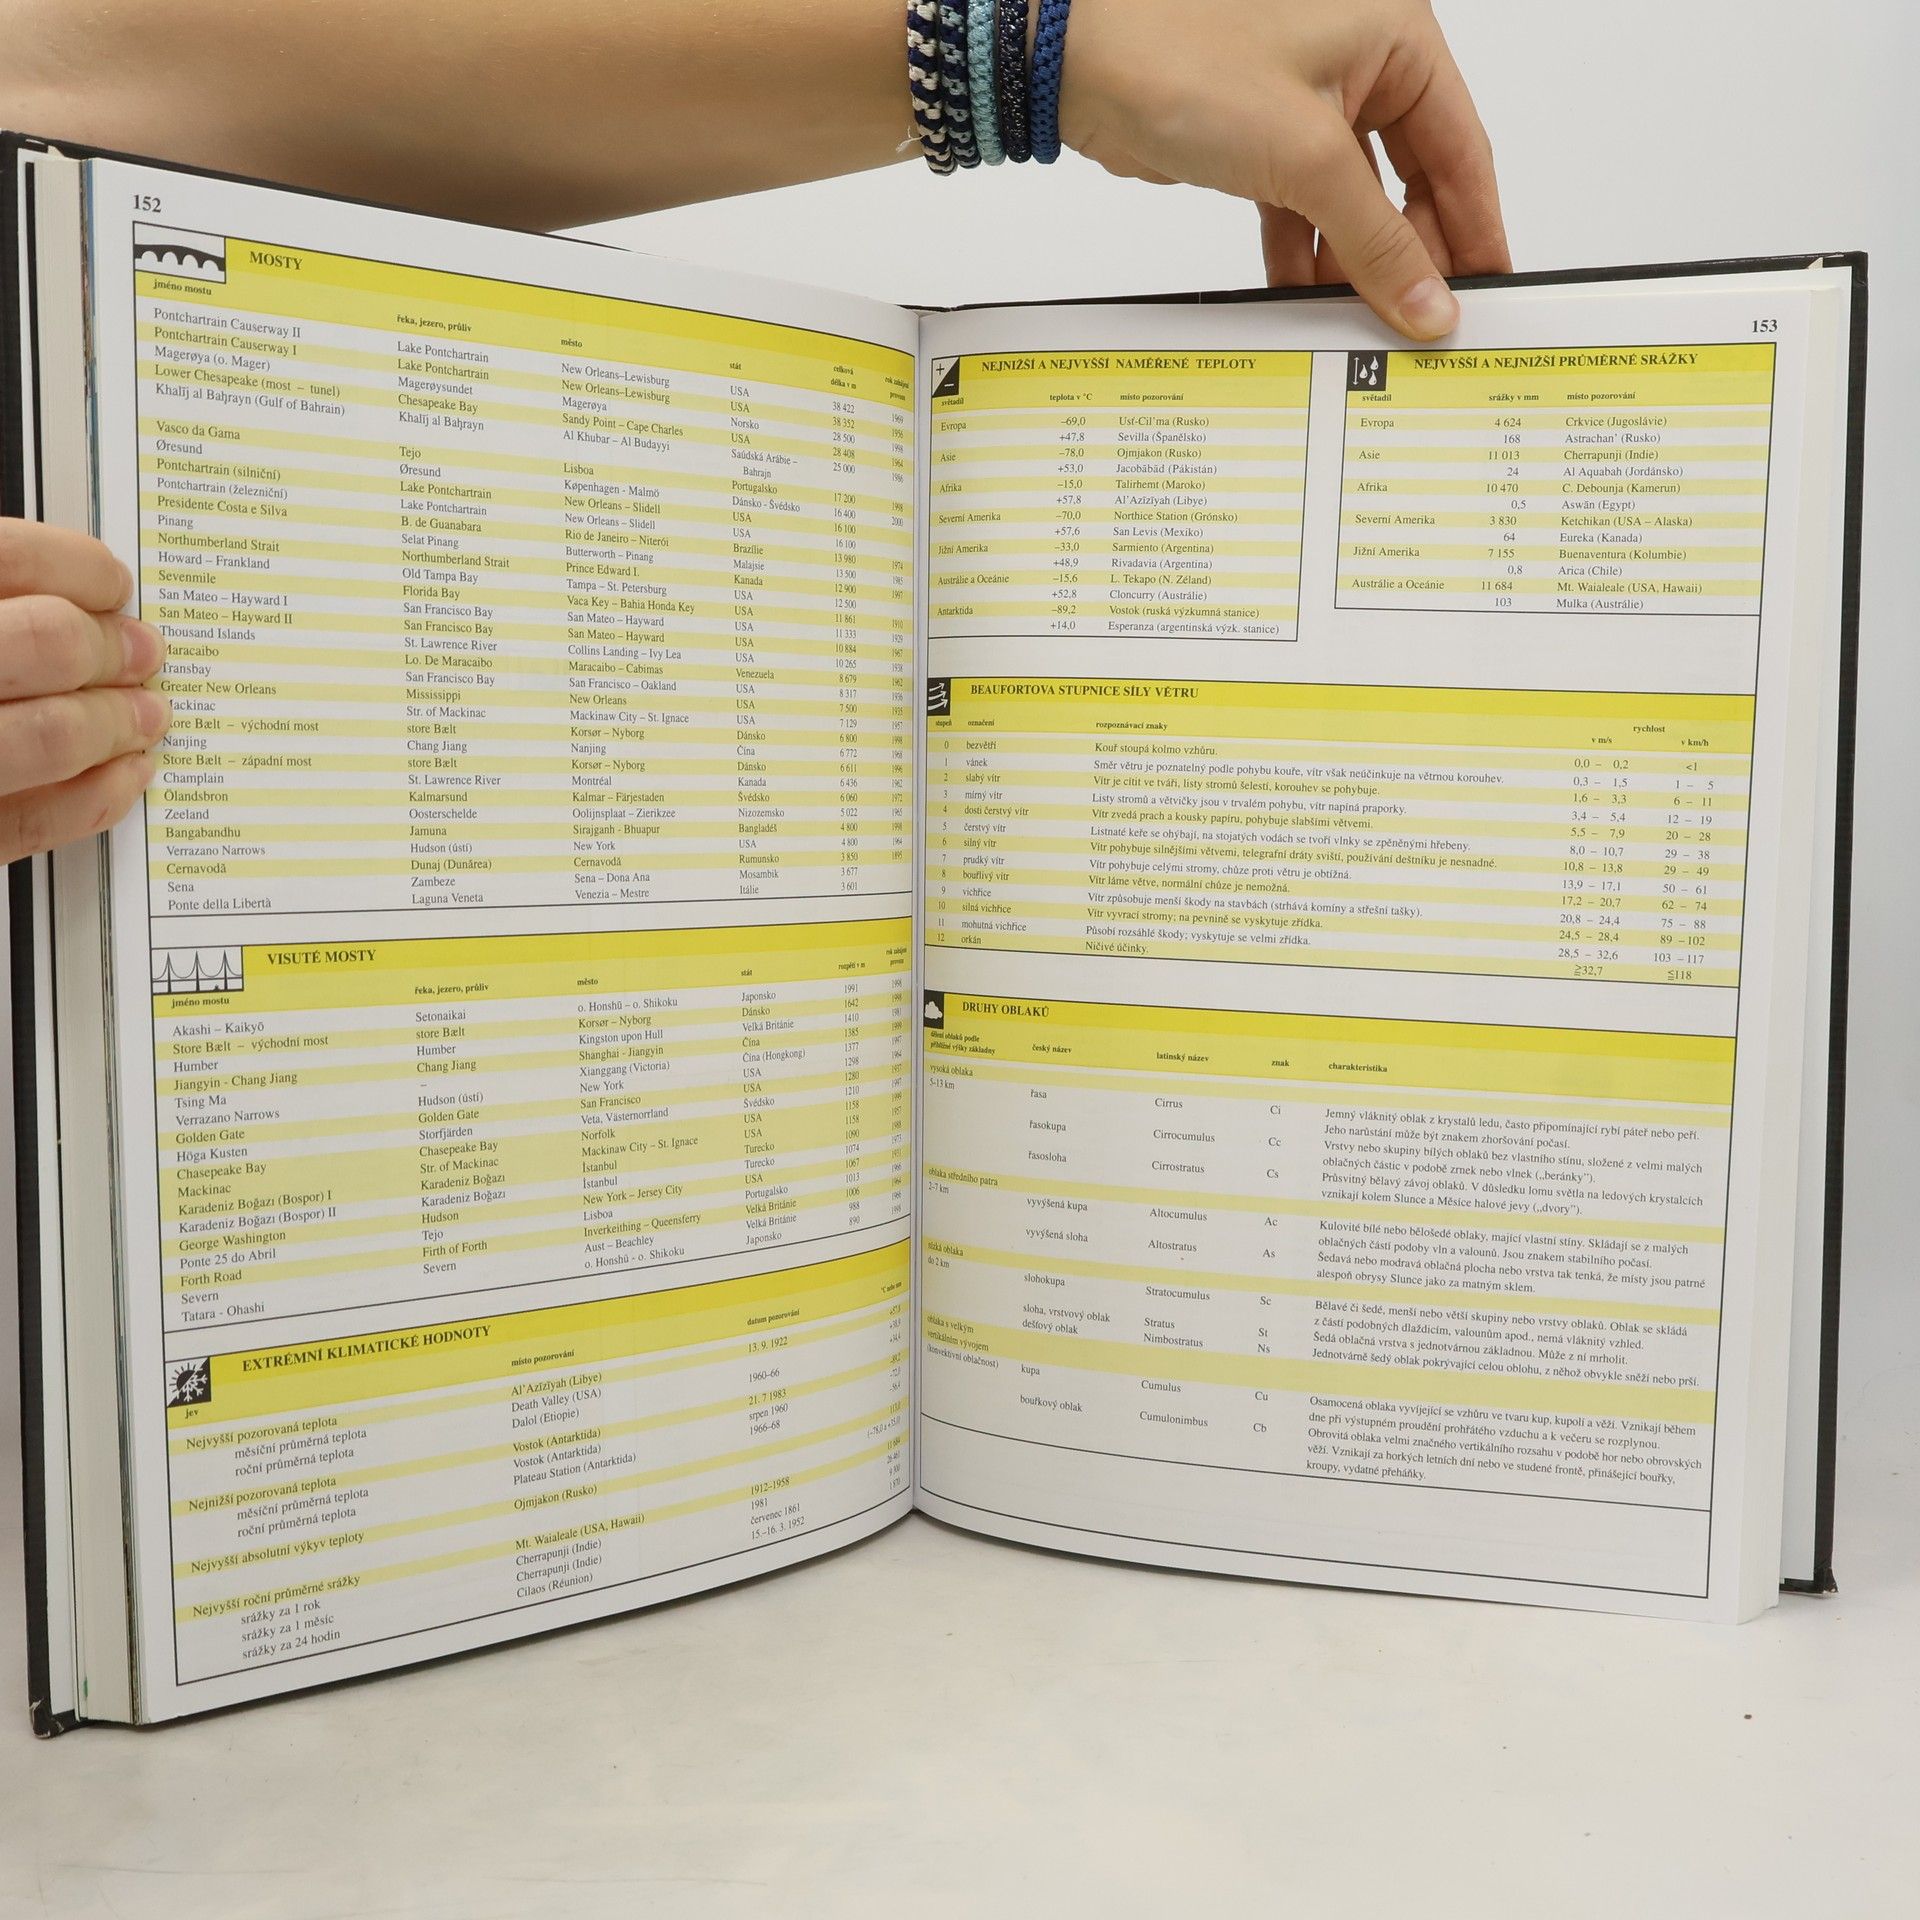 152
MOSTY
jméno mostu řeka, jezero, průliv město stát celková délka v m rok zahájení provozu
Pontchartrain Causeway II Lake Pontchartrain New Orleans–Lewisburg USA 38 422 1969
Pontchartrain Causerway I Lake Pontchartrain New Orleans–Lewisburg USA 38 352 1956
Magerøya (o. Mager) Magerøysundet Magerøya Norsko 28 500 1998
Lower Chesapeake (most – tunel) Chesapeake Bay Sandy Point – Cape Charles USA 28 408 1964
Khalīj al Baḩrayn (Gulf of Bahrain) Khalīj al Baḩrayn Al Khubar – Al Budayyi Saúdská Arábie – Bahrajn 25 000 1986
Vasco da Gama Tejo Lisboa Portugalsko 17 200 1998
Øresund Øresund Køpenhagen - Malmö Dánsko - Švédsko 16 400 2000
Pontchartrain (silniční) Lake Pontchartrain New Orleans – Slidell USA 16 100
Pontchartrain (železniční) Lake Pontchartrain New Orleans – Slidell USA 16 100
Presidente Costa e Silva B. de Guanabara Rio de Janeiro – Niterói Brazílie 13 980 1974
Pinang Selat Pinang Butterworth – Pinang Malajsie 13 500 1985
Northumberland Strait Northumberland Strait Prince Edward I. Kanada 12 900 1997
Howard – Frankland Old Tampa Bay Tampa – St. Petersburg USA 12 500
Sevenmile Florida Bay Vaca Key – Bahia Honda Key USA 11 861 1910
San Mateo – Hayward I San Francisco Bay San Mateo – Hayward USA 11 333 1929
San Mateo – Hayward II San Francisco Bay San Mateo – Hayward USA 10 884 1967
Thousand Islands St. Lawrence River Collins Landing – Ivy Lea USA 10 265 1938
Maracaibo Lo. De Maracaibo Maracaibo – Cabimas Venezuela 8 679 1962
Transbay San Francisco Bay San Francisco – Oakland USA 8 317 1936
Greater New Orleans Mississippi New Orleans USA 7 500 1935
ackinac Str. of Mackinac Mackinaw City – St. Ignace USA 7 129 1957
ore Bælt – východní most store Bælt Korsør – Nyborg Dánsko 6 800 1998
Nanjing Chang Jiang Nanjing Čína 6 772 1968
Store Bælt – západní most store Bælt Korsør – Nyborg Dánsko 6 611 1996
Champlain St. Lawrence River Montréal Kanada 6 436 1962
Ölandsbron Kalmarsund Kalmar – Färjestaden Švédsko 6 060 1972
Zeeland Oosterschelde Oolijnsplaat – Zierikzee Nizozemsko 5 022 1965
Bangabandhu Jamuna Sirajganh - Bhuapur Bangladéš 4 800 1998
Verrazano Narrows Hudson (ústí) New York USA 4 800 1964
Cernavodă Dunaj (Dunărea) Cernavodă Rumunsko 3 850 1895
Sena Zambeze Sena – Dona Ana Mosambik 3 677
Ponte della Libertà Laguna Veneta Venezia – Mestre Itálie 3 601
VISUTÉ MOSTY
jméno mostu řeka, jezero, průliv město stát rozpětí v m rok zahájení provozu
Akashi – Kaikyō Setonaikai o. Honshū – o. Shikoku Japonsko 1991 1998
Store Bælt – východní most store Bælt Korsør – Nyborg Dánsko 1642 1998
Humber Humber Kingston upon Hull Velká Británie 1410 1981
Jiangyin - Chang Jiang Chang Jiang Shanghai - Jiangyin Čína 1385 1999
Tsing Ma – Xianggang (Victoria) Čína (Hongkong) 1377 1997
Verrazano Narrows Hudson (ústí) New York USA 1298 1964
Golden Gate Golden Gate San Francisco USA 1280 1937
Höga Kusten Storfjärden Veta, Västernorrland Švédsko 1210 1997
Chasepeake Bay Chasepeake Bay Norfolk USA 1158 1999
Mackinac Str. of Mackinac Mackinaw City – St. Ignace USA 1158 1957
Karadeniz Boğazı (Bospor) I Karadeniz Boğazı İstanbul Turecko 1090 1988
Karadeniz Boğazı (Bospor) II Karadeniz Boğazı İstanbul Turecko 1074 1973
George Washington Hudson New York – Jersey City USA 1067 1931
Ponte 25 do Abril Tejo Lisboa Portugalsko 1013 1966
Forth Road Firth of Forth Inverkeithing – Queensferry Velká Británie 1006 1964
Severn Severn Aust – Beachley Velká Británie 988 1966
Tatara - Ohashi o. Honshū - o. Shikoku Japonsko 890 1998
EXTRÉMNÍ KLIMATICKÉ HODNOTY
jev místo pozorování datum pozorování °C nebo mm
Nejvyšší pozorovaná teplota Al'Azīzīyah (Libye) 13. 9. 1922 +57,8
měsíční průměrná teplota Death Valley (USA)
roční průměrná teplota Dalol (Etiopie) 1960–66 +34,4
Nejnižší pozorovaná teplota Vostok (Antarktida) 21. 7 1983 –89,2
měsíční průměrná teplota Vostok (Antarktida) srpen 1960
roční průměrná teplota Plateau Station (Antarktida) 1966–68
Nejvyšší absolutní výkyv teploty Ojmjakon (Rusko)
Nejvyšší roční průměrné srážky Mt. Waialeale (USA, Hawaii) 1912–1958 11 684
srážky za 1 rok Cherrapunji (Indie) 1981 26 461
srážky za 1 měsíc Cherrapunji (Indie) červenec 1861 9 300
srážky za 24 hodin Cilaos (Réunion) 15.–16. 3. 1952 1 870
153
NEJNIŽŠÍ A NEJVYŠŠÍ NAMĚŘENÉ TEPLOTY
světadíl teplota v °C místo pozorování
Evropa –69,0 Usť-Cil'ma (Rusko)
+47,8 Sevilla (Španělsko)
Asie –78,0 Ojmjakon (Rusko)
+53,0 Jacobābād (Pákistán)
Afrika –15,0 Talirhemt (Maroko)
+57.8 Al'Azīzīyah (Libye)
Severní Amerika –70,0 Northice Station (Grónsko)
+57,6 San Levis (Mexiko)
Jižní Amerika –33,0 Sarmiento (Argentina)
+48,9 Rivadavia (Argentina)
Austrálie a Oceánie –15,6 L. Tekapo (N. Zéland)
+52,8 Cloncurry (Austrálie)
Antarktida –89,2 Vostok (ruská výzkumná stanice)
+14,0 Esperanza (argentinská výzk. stanice)
NEJVYŠŠÍ A NEJNIŽŠÍ PRŮMĚRNÉ SRÁŽKY
světadíl srážky v mm místo pozorování
Evropa 4 624 Crkvice (Jugoslávie)
168 Astrachan' (Rusko)
Asie 11 013 Cherrapunji (Indie)
24 Al Aquabah (Jordánsko)
Afrika 10 470 C. Debounja (Kamerun)
0,5 Aswân (Egypt)
Severní Amerika 3 830 Ketchikan (USA – Alaska)
64 Eureka (Kanada)
Jižní Amerika 7 155 Buenaventura (Kolumbie)
0,8 Arica (Chile)
Austrálie a Oceánie 11 684 Mt. Waialeale (USA, Hawaii)
103 Mulka (Austrálie)
BEAUFORTOVA STUPNICE SÍLY VĚTRU
stupeň označení rozpoznávací znaky rychlost
v m/s v km/h
0 bezvětří Kouř stoupá kolmo vzhůru. 0,0 – 0,2 <1
1 vánek Směr větru je poznatelný podle pohybu kouře, vítr však neúčinkuje na větrnou korouhev. 0,3 – 1,5 1 – 5
2 slabý vítr Vítr je cítit ve tváři, listy stromů šelestí, korouhev se pohybuje. 1,6 – 3,3 6 – 11
3 mírný vítr Listy stromů a větvičky jsou v trvalém pohybu, vítr napíná praporky. 3,4 – 5,4 12 – 19
4 dosti čerstvý vítr Vítr zvedá prach a kousky papíru, pohybuje slabšími větvemi. 5,5 – 7,9 20 – 28
5 čerstvý vítr Listnaté keře se ohýbají, na stojatých vodách se tvoří vlnky se zpěněnými hřebeny. 8,0 – 10,7 29 – 38
6 silný vítr Vítr pohybuje silnějšími větvemi, telegrafní dráty sviští, používání deštníku je nesnadné. 10,8 – 13,8 29 – 49
7 prudký vítr Vítr pohybuje celými stromy, chůze proti větru je obtížná. 13,9 – 17,1 50 – 61
8 bouřlivý vítr Vítr láme větve, normální chůze je nemožná. 17,2 – 20,7 62 – 74
9 vichřice Vítr způsobuje menší škody na stavbách (strhává komíny a střešní tašky). 20,8 – 24,4 75 – 88
10 silná vichřice Vítr vyvrací stromy; na pevnině se vyskytuje zřídka. 24,5 – 28,4 89 –102
11 mohutná vichřice Působí rozsáhlé škody; vyskytuje se velmi zřídka. 28,5 – 32,6 103 –117
12 orkán Ničivé účinky. ≧32,7 ≦118
DRUHY OBLAKŮ
dělení oblaků podle přibližné výšky základny český název latinský název znak charakteristika
vysoká oblaka
5–13 km
řasa Cirrus Ci Jemný vláknitý oblak z krystalů ledu, často připomínající rybí páteř nebo peří.
Jeho narůstání může být znakem zhoršování počasí.
řasokupa Cirrocumulus Cc Vrstvy nebo skupiny bílých oblaků bez vlastního stínu, složené z velmi malých
oblačných částic v podobě zrnek nebo vlnek („beránky").
řasosloha Cirrostratus Cs Průsvitný bělavý závoj oblaků. V důsledku lomu světla na ledových krystalcích
vznikají kolem Slunce a Měsíce halové jevy („dvory").
oblaka středního patra
2–7 km
vyvýšená kupa Altocumulus Ac Kulovité bílé nebo bělošedé oblaky, mající vlastní stíny. Skládají se z malých
oblačných částí podoby vln a valounů. Jsou znakem stabilního počasí.
vyvýšená sloha Altostratus As Šedavá nebo modravá oblačná plocha nebo vrstva tak tenká, že místy jsou patrné
alespoň obrysy Slunce jako za matným sklem.
nízká oblaka
do 2 km
slohokupa Stratocumulus Sc Bělavé či šedé, menší nebo větší skupiny nebo vrstvy oblaků. Oblak se skládá
z částí podobných dlaždicím, valounům apod., nemá vláknitý vzhled.
sloha, vrstvový oblak Stratus St Šedá oblačná vrstva s jednotvárnou základnou. Může z ní mrholit.
dešťový oblak Nimbostratus Ns Jednotvárně šedý oblak pokrývající celou oblohu, z něhož obvykle sněží nebo prší.
oblaka s velkým
vertikálním vývojem
(konvektivní oblačnost)
kupa Cumulus Cu Osamocená oblaka vyvíjející se vzhůru ve tvaru kup, kupolí a věží. Vznikají během
dne při výstupném proudění prohřátého vzduchu a k večeru se rozplynou.
bouřkový oblak Cumulonimbus Cb Obrovitá oblaka velmi značného vertikálního rozsahu v podobě hor nebo obrovských
věží. Vznikají za horkých letních dní nebo ve studené frontě, přinášející bouřky,
kroupy, vydatné přeháňky.